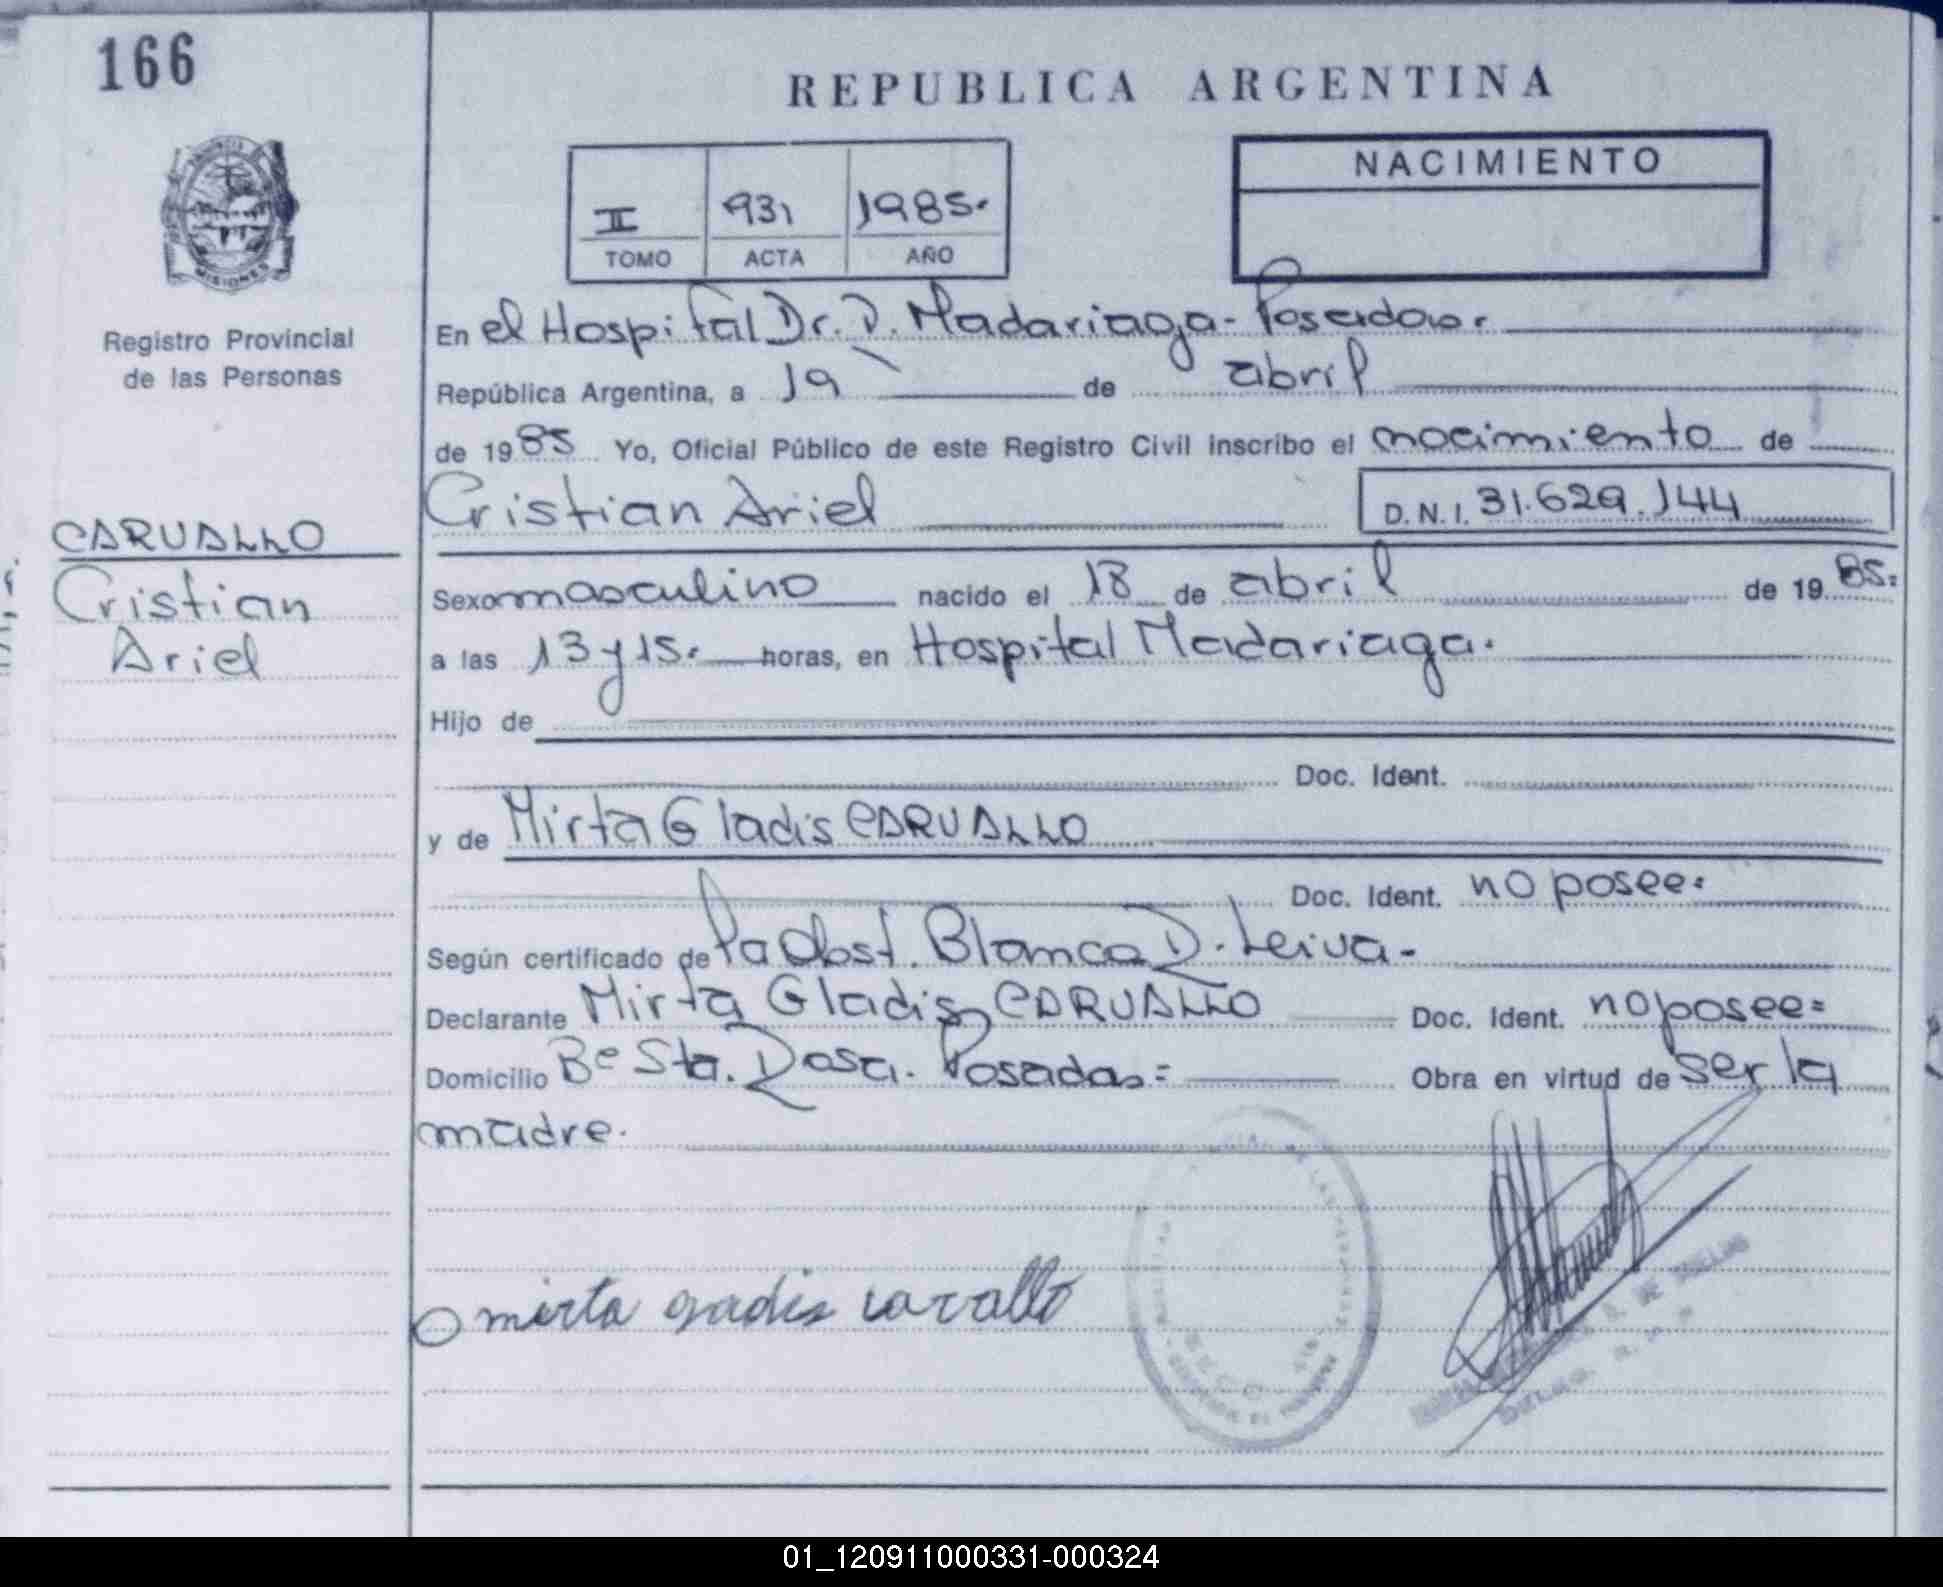 166
REPUBLICA ARGENTINA
MISIONES
Registro Provincial
de las Personas
II 931 1985.
TOMO ACTA AÑO
NACIMIENTO
En el Hospital Dr. D. Madariaga - Posadas.
República Argentina, a 19 de abril
de 1985 Yo, Oficial Público de este Registro Civil inscribo el nacimiento de
Cristian Ariel D.N.I. 31.629.144
CARVALLO
Cristian
Ariel
Sexo masculino nacido el 18 de abril de 1985.
a las 13 y 15. horas, en Hospital Madariaga.
Hijo de
Doc. Ident.
y de Mirta Gladis CARVALLO
Doc. Ident. no posee.
Según certificado de la Obst. Blanca D. Leiva-
Declarante Mirta Gladis CARVALLO Doc. Ident. no posee=
Domicilio Bº Sta. Rosa. Posadas= Obra en virtud de ser la
madre.
mirta gadis carallo
01_120911000331-000324